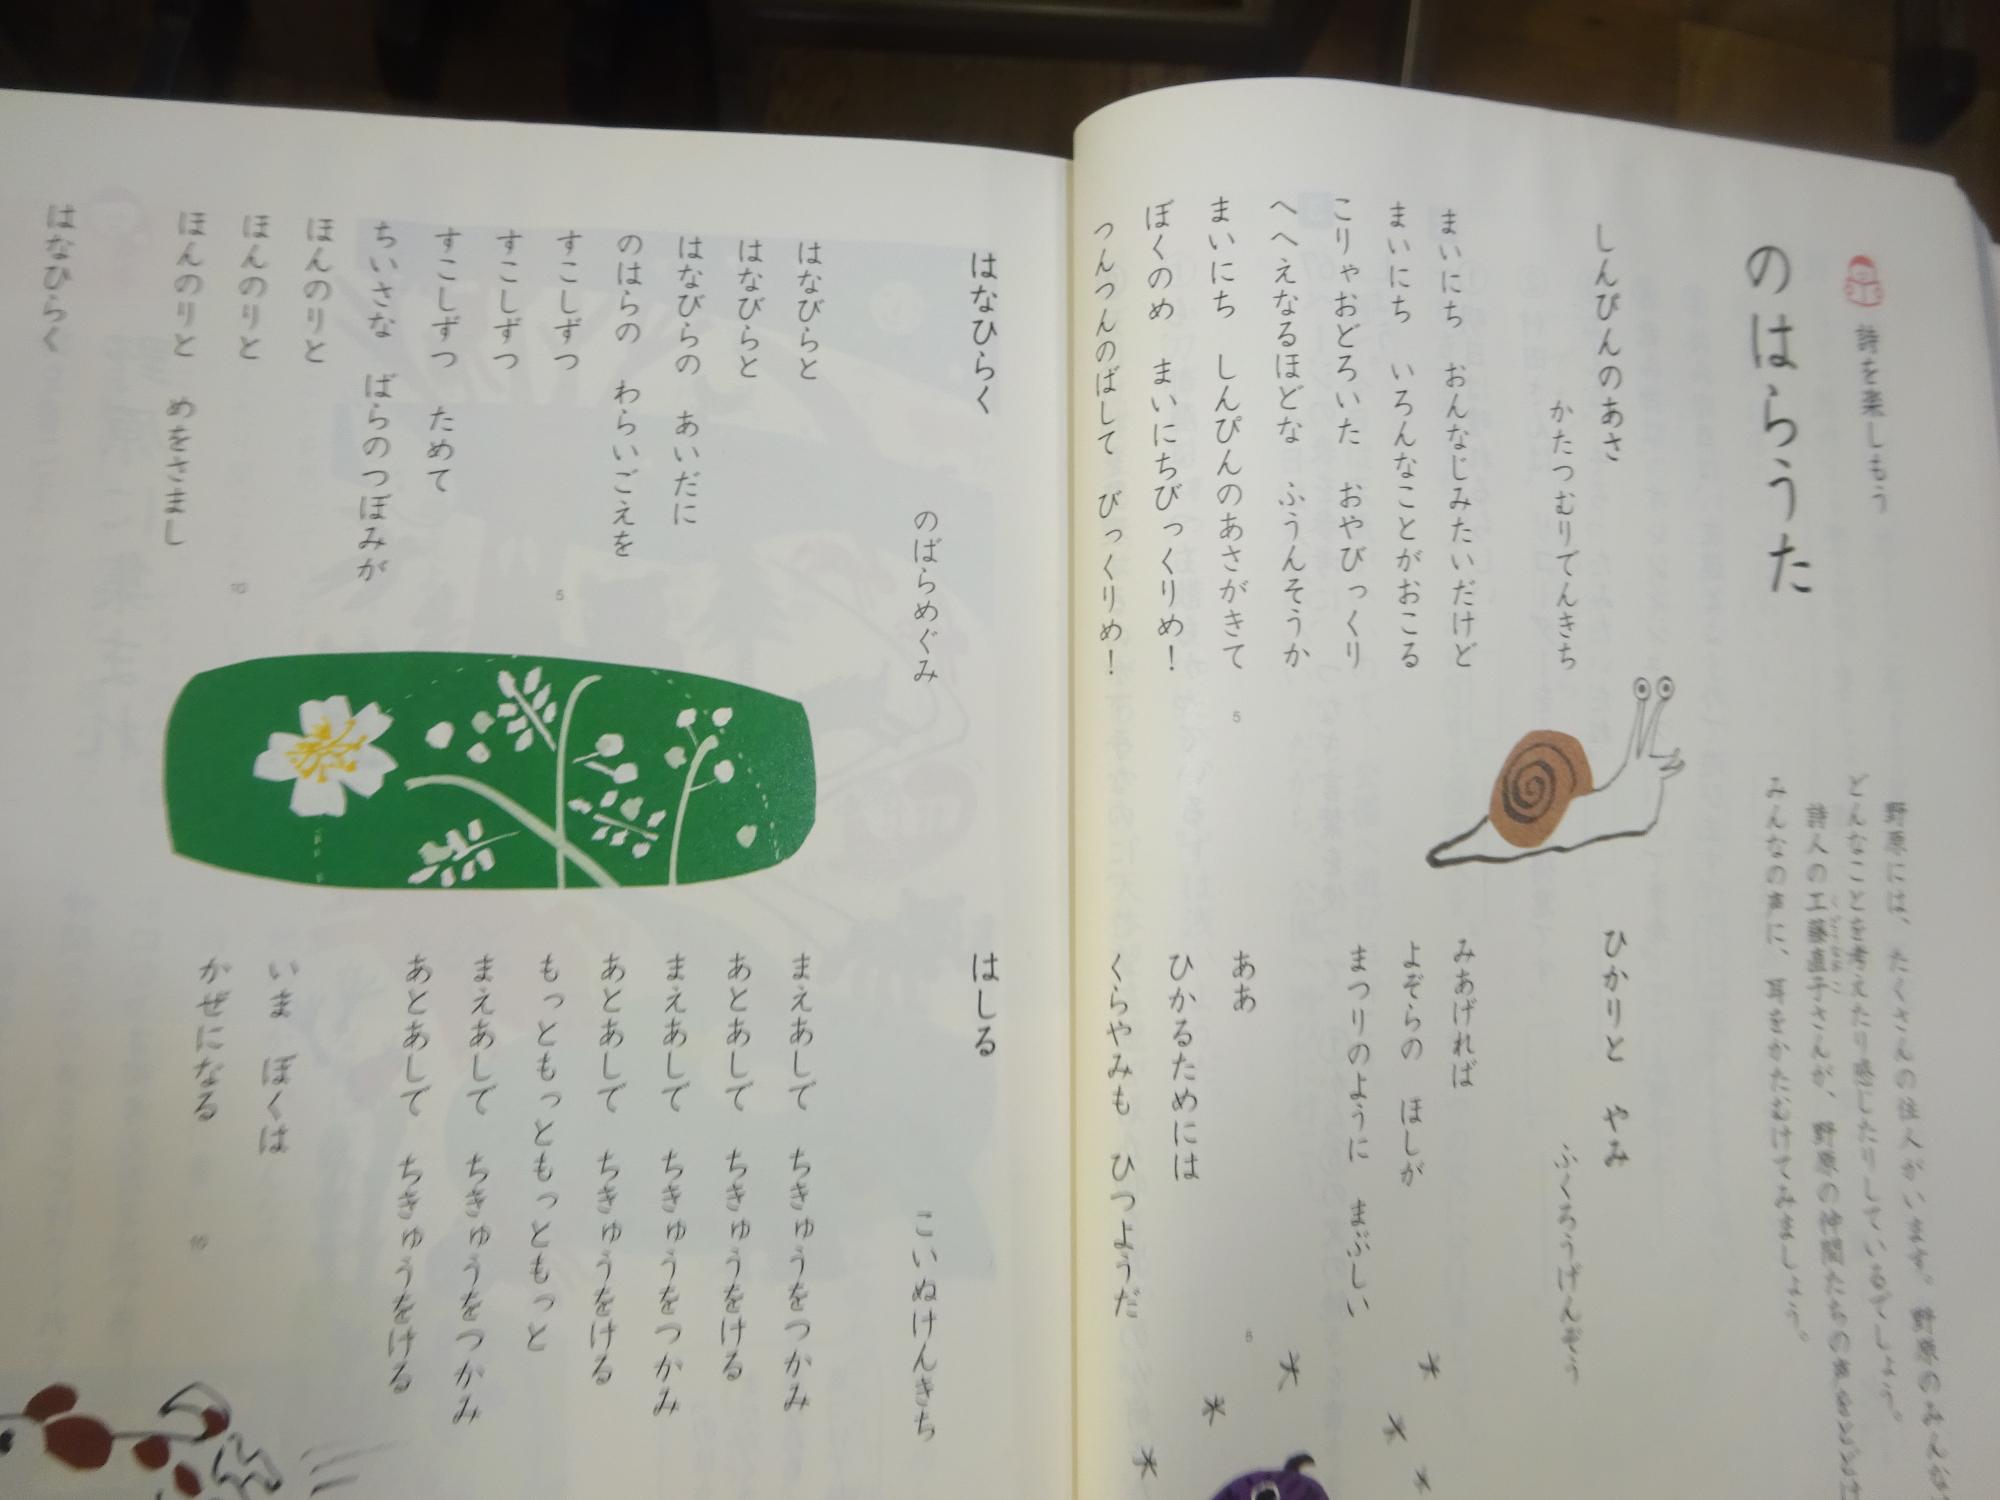 詩を楽しもう
のはらうた
野原には、たくさんの住人がいます。野原のみんなは
どんなことを考えたり感じたりしているでしょう。
詩人の工藤直子さんが、野原の仲間たちの
みんなの声に、耳をかたむけてみましょう。
しんぴんのあさ
かたつむりでんきち
まいにち おんなじみたいだけど
まいにち いろんなことがおこる
こりゃおどろいた おやびっくり
へへえなるほどな ふうんそうか
まいにち しんぴんのあさがきて
ぼくのめ まいにちびっくりめ!
つんつんのばして びっくりめ!
5
ひかりと やみ
ふくろうげんぞう
みあげれば
よぞらの ほしが
まつりのように まぶしい
ああ
ひかるためには
くらやみも ひつようだ
5
はなひらく
のばらめぐみ
はなびらと
はなびらと
はなびらの あいだに
のはらの わらいごえを
すこしずつ
すこしずつ
すこしずつ ためて
ちいさな ばらのつぼみが
ほんのりと
ほんのりと
ほんのりと めをさまし
はなひらく
5
10
はしる
こいぬけんきち
まえあしで ちきゅうをつかみ
あとあしで ちきゅうをける
まえあしで ちきゅうをつかみ
あとあしで ちきゅうをける
もっともっともっともっと
まえあしで ちきゅうをつかみ
あとあしで ちきゅうをける
いま ぼくは
かぜになる
10